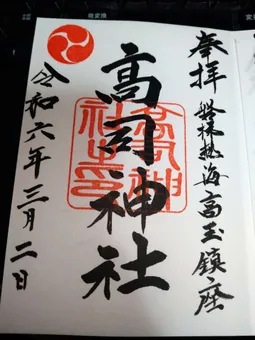 奉拝 磐梯熱海高玉鎮座
高司神社
令和六年三月二日